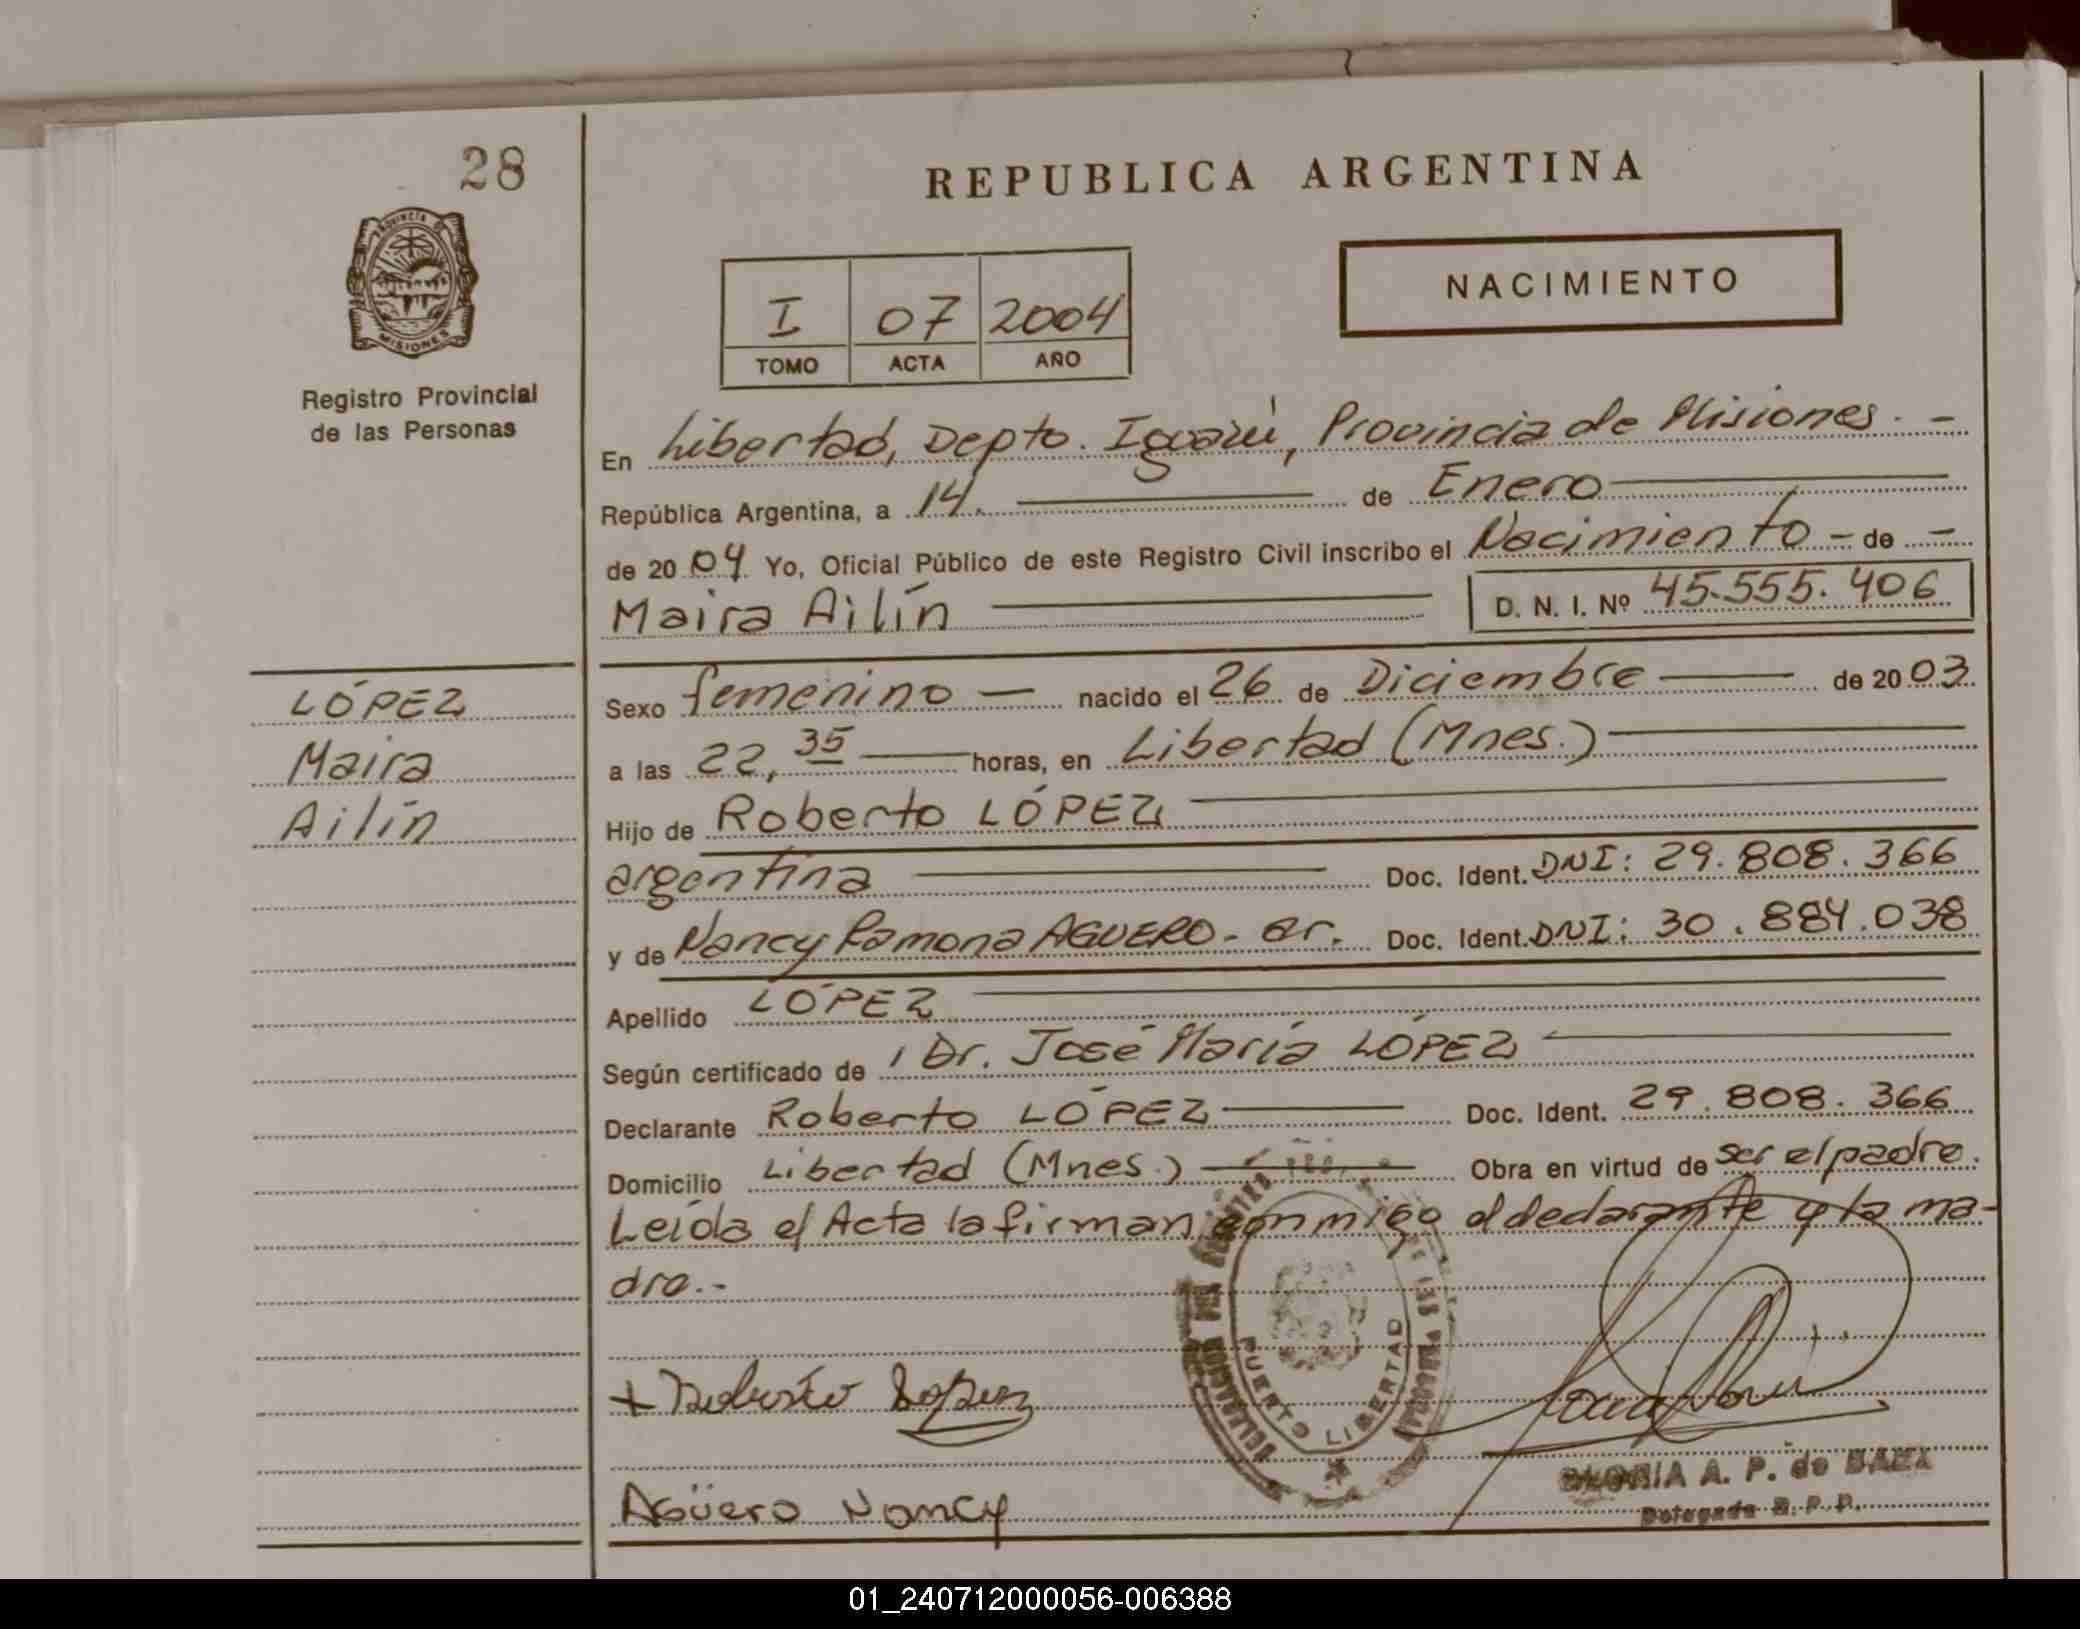 28
REPUBLICA ARGENTINA
PROVINCIA DE
MISIONES
Registro Provincial
de las Personas
I 07 2004
TOMO ACTA AÑO
NACIMIENTO
En Libertad, Depto. Iguazú, Provincia de Misiones. -
República Argentina, a 14. de Enero
de 2004 Yo, Oficial Público de este Registro Civil inscribo el Nacimiento - de -
Maira Ailín D. N. I. Nº 45.555.406
LÓPEZ
Maira
Ailín
Sexo femenino — nacido el 26 de Diciembre — de 2003
a las 22,35 — horas, en Libertad (Mnes.)
Hijo de Roberto LÓPEZ
argentina Doc. Ident. DNI: 29.808.366
y de Nancy Ramona AGUERO - ar. Doc. Ident. DNI: 30.884.038
Apellido LÓPEZ
Según certificado de Dr. José María LÓPEZ
Declarante Roberto LÓPEZ Doc. Ident. 29.808.366
Domicilio Libertad (Mnes.) Obra en virtud de ser el padre.
Leída el Acta la firman conmigo el declarante y la ma-
dre.-
+ Roberto Lopez
PUERTO LIBERTAD
GLORIA A. P. de BAEZ
Delegada R. P. P.
Agüero Nancy
01_240712000056-006388